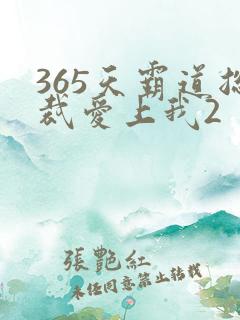 365天霸道总
裁爱上我2
張艷紅
未经同意禁止转载